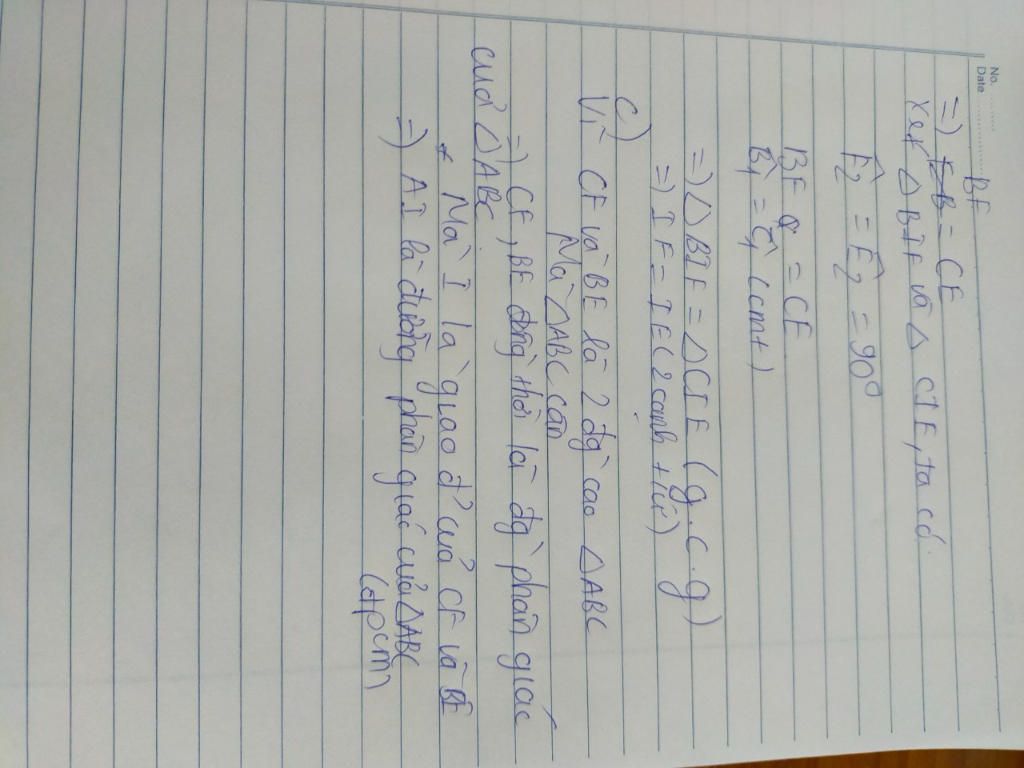 No.
Date
BF
=) = CE
Xét △ BIF và △ CIE, ta có:
F̂2 = Ê2 = 90°
BF = CE
B̂1 = Ĉ1 (cmt)
=) △ BIF = △CIE (g.c.g)
=) IF = IE (2 cạnh t/ứ)
c)
Vì CF và BE là 2 đg cao △ABC
Mà △ABC cân
=) CF, BE đồng thời là đg phân giác
của △ABC
* Mà I là giao đ' của CF và BE
=) AI là đường phân giác của △ABC
(đpcm)